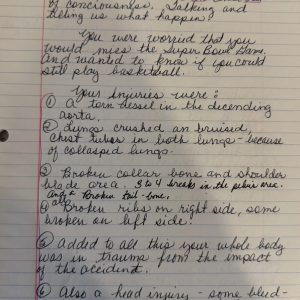 of conciousness, Talking and
telling us what happen?
You were worried that you
would miss the Super Bowl Game
and wanted to know if you could
still play basketball.
Your injuries were:
① A torn vessel in the decending
aorta.
② Lungs crushed an bruised,
chest tubes in both lungs - because
of collasped lungs.
③ Broken collar bone and shoulder
blade area. 3 to 4 breaks in the pelvic area.
Broken tail-bone,
④ Broken ribs on right side, some
broken on left side.
⑤ Added to all this your whole body
was in trauma from the impact
of the accident.
⑥ Also a head injury - some bleed-